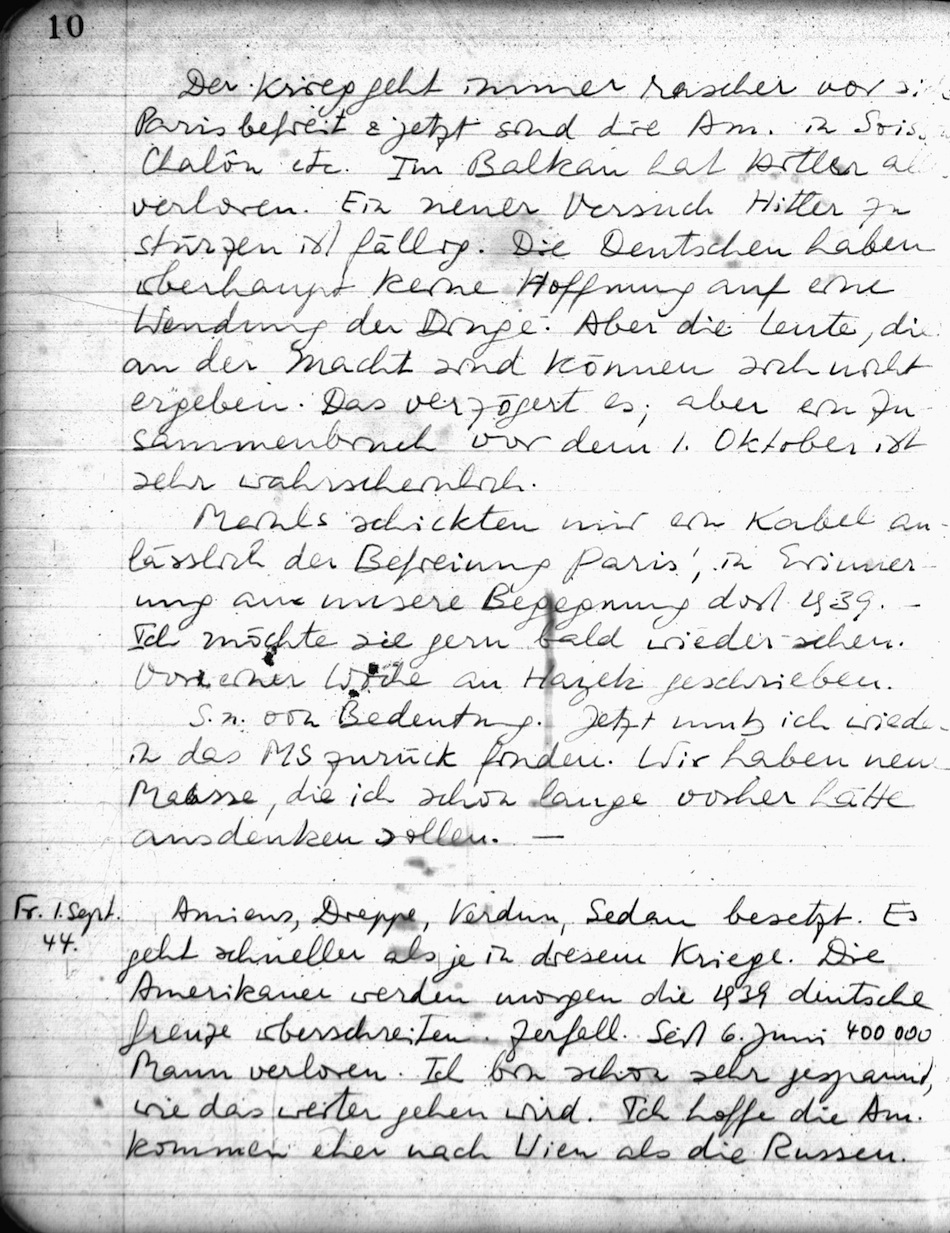 10
Der Krieg geht immer rascher vor si
Paris befreit & jetzt sind die Am. in Soiss
Chalôn etc. Im Balkan hat Hitler al
verloren. Ein neuer Versuch Hitler zu
stürzen ist fällig. Die Deutschen haben
überhaupt keine Hoffnung auf eine
Wendung der Dinge. Aber die Leute, die
an der Macht sind können sich nicht
ergeben. Das verzögert es; aber ein Zu-
sammenbruch vor dem 1. Oktober ist
sehr wahrscheinlich.
schickten mir ein Kabel an-
lässlich der Befreiung Paris', in Erinner-
ung an unsere Begegnung dort 1939. –
Ich möchte sie gern bald wieder sehen.
Vor einer Woche an Hayek geschrieben.
S.n. von Bedeutung. Jetzt muß ich wiede
in das MS zurück finden. Wir haben neue
Masse, die ich schon lange vorher hätte
ausdenken sollen. —
Fr. 1. Sept. 44.
Amiens, Dieppe, Verdun, Sedan besetzt. Es
geht schneller als je in diesem Kriege. Die
Amerikaner werden morgen die 1939 deutsche
Grenze überschreiten. Zerfall. Seit 6. Juni 400 000
Mann verloren. Ich bin schon sehr gespannt,
wie das weiter gehen wird. Ich hoffe die Am.
kommen eher nach Wien als die Russen.